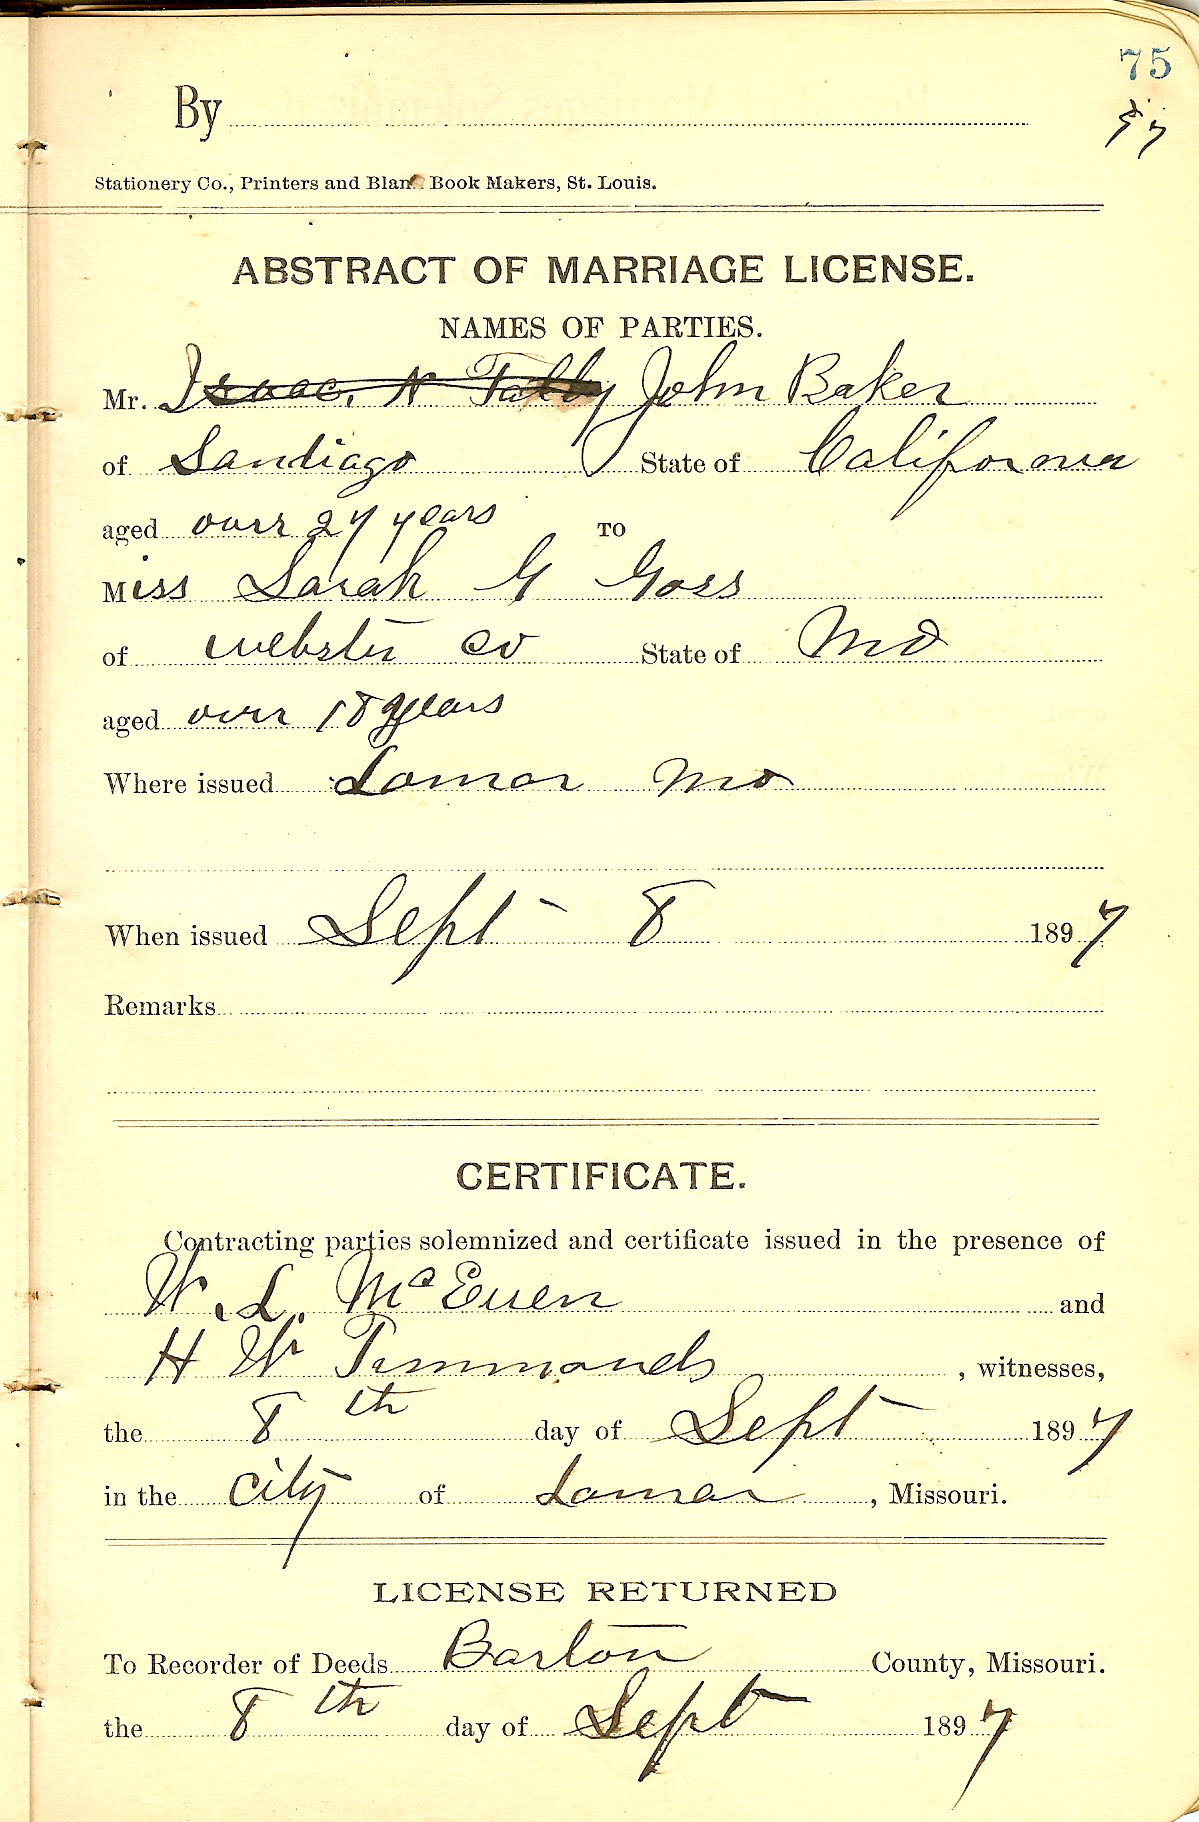 75
By
97
Stationery Co., Printers and Blank Book Makers, St. Louis.
ABSTRACT OF MARRIAGE LICENSE.
NAMES OF PARTIES.
Mr. Isaac. N John Baker
of Sandiago State of California
aged over 27 years TO
Miss Sarah G Goss
of Webster Co State of Mo
aged over 18 years
Where issued Lamar Mo
When issued Sept 8 1897
Remarks
CERTIFICATE.
Contracting parties solemnized and certificate issued in the presence of
W. L. McEuen and
H W Timmonds , witnesses,
the 8th day of Sept 1897
in the City of Lamar , Missouri.
LICENSE RETURNED
To Recorder of Deeds Barton County, Missouri.
the 8th day of Sept 1897